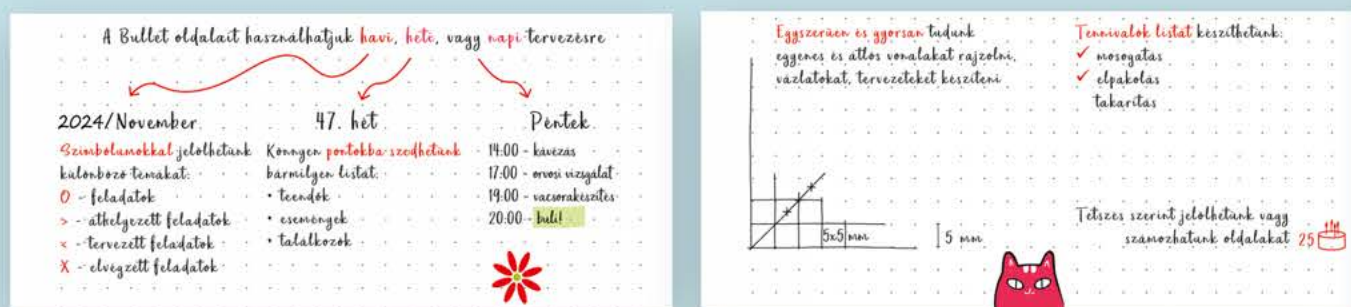 A Bullet oldalait használhatjuk havi, heti, vagy napi tervezésre
2024/November
Szimbólumokkal jelölhetünk
különböző témákat:
O - feladatok
> - áthelyezett feladatok
< - tervezett feladatok
X - elvégzett feladatok
47. hét
Könnyen pontokba szedhetünk
bármilyen listát:
• teendők
• események
• találkozók
Péntek
14:00 - kávézás
17:00 - orvosi vizsgálat
19:00 - vacsorakészítés
20:00 - buli!
Egyszerűen és gyorsan tudunk
egyenes és átlós vonalakat rajzolni,
vázlatokat, tervezeteket készíteni
5x5 mm
5 mm
Tennivalók listát készíthetünk:
✓ mosogatás
✓ elpakolás
takarítás
Tetszés szerint jelölhetünk vagy
számozhatunk oldalakat 25